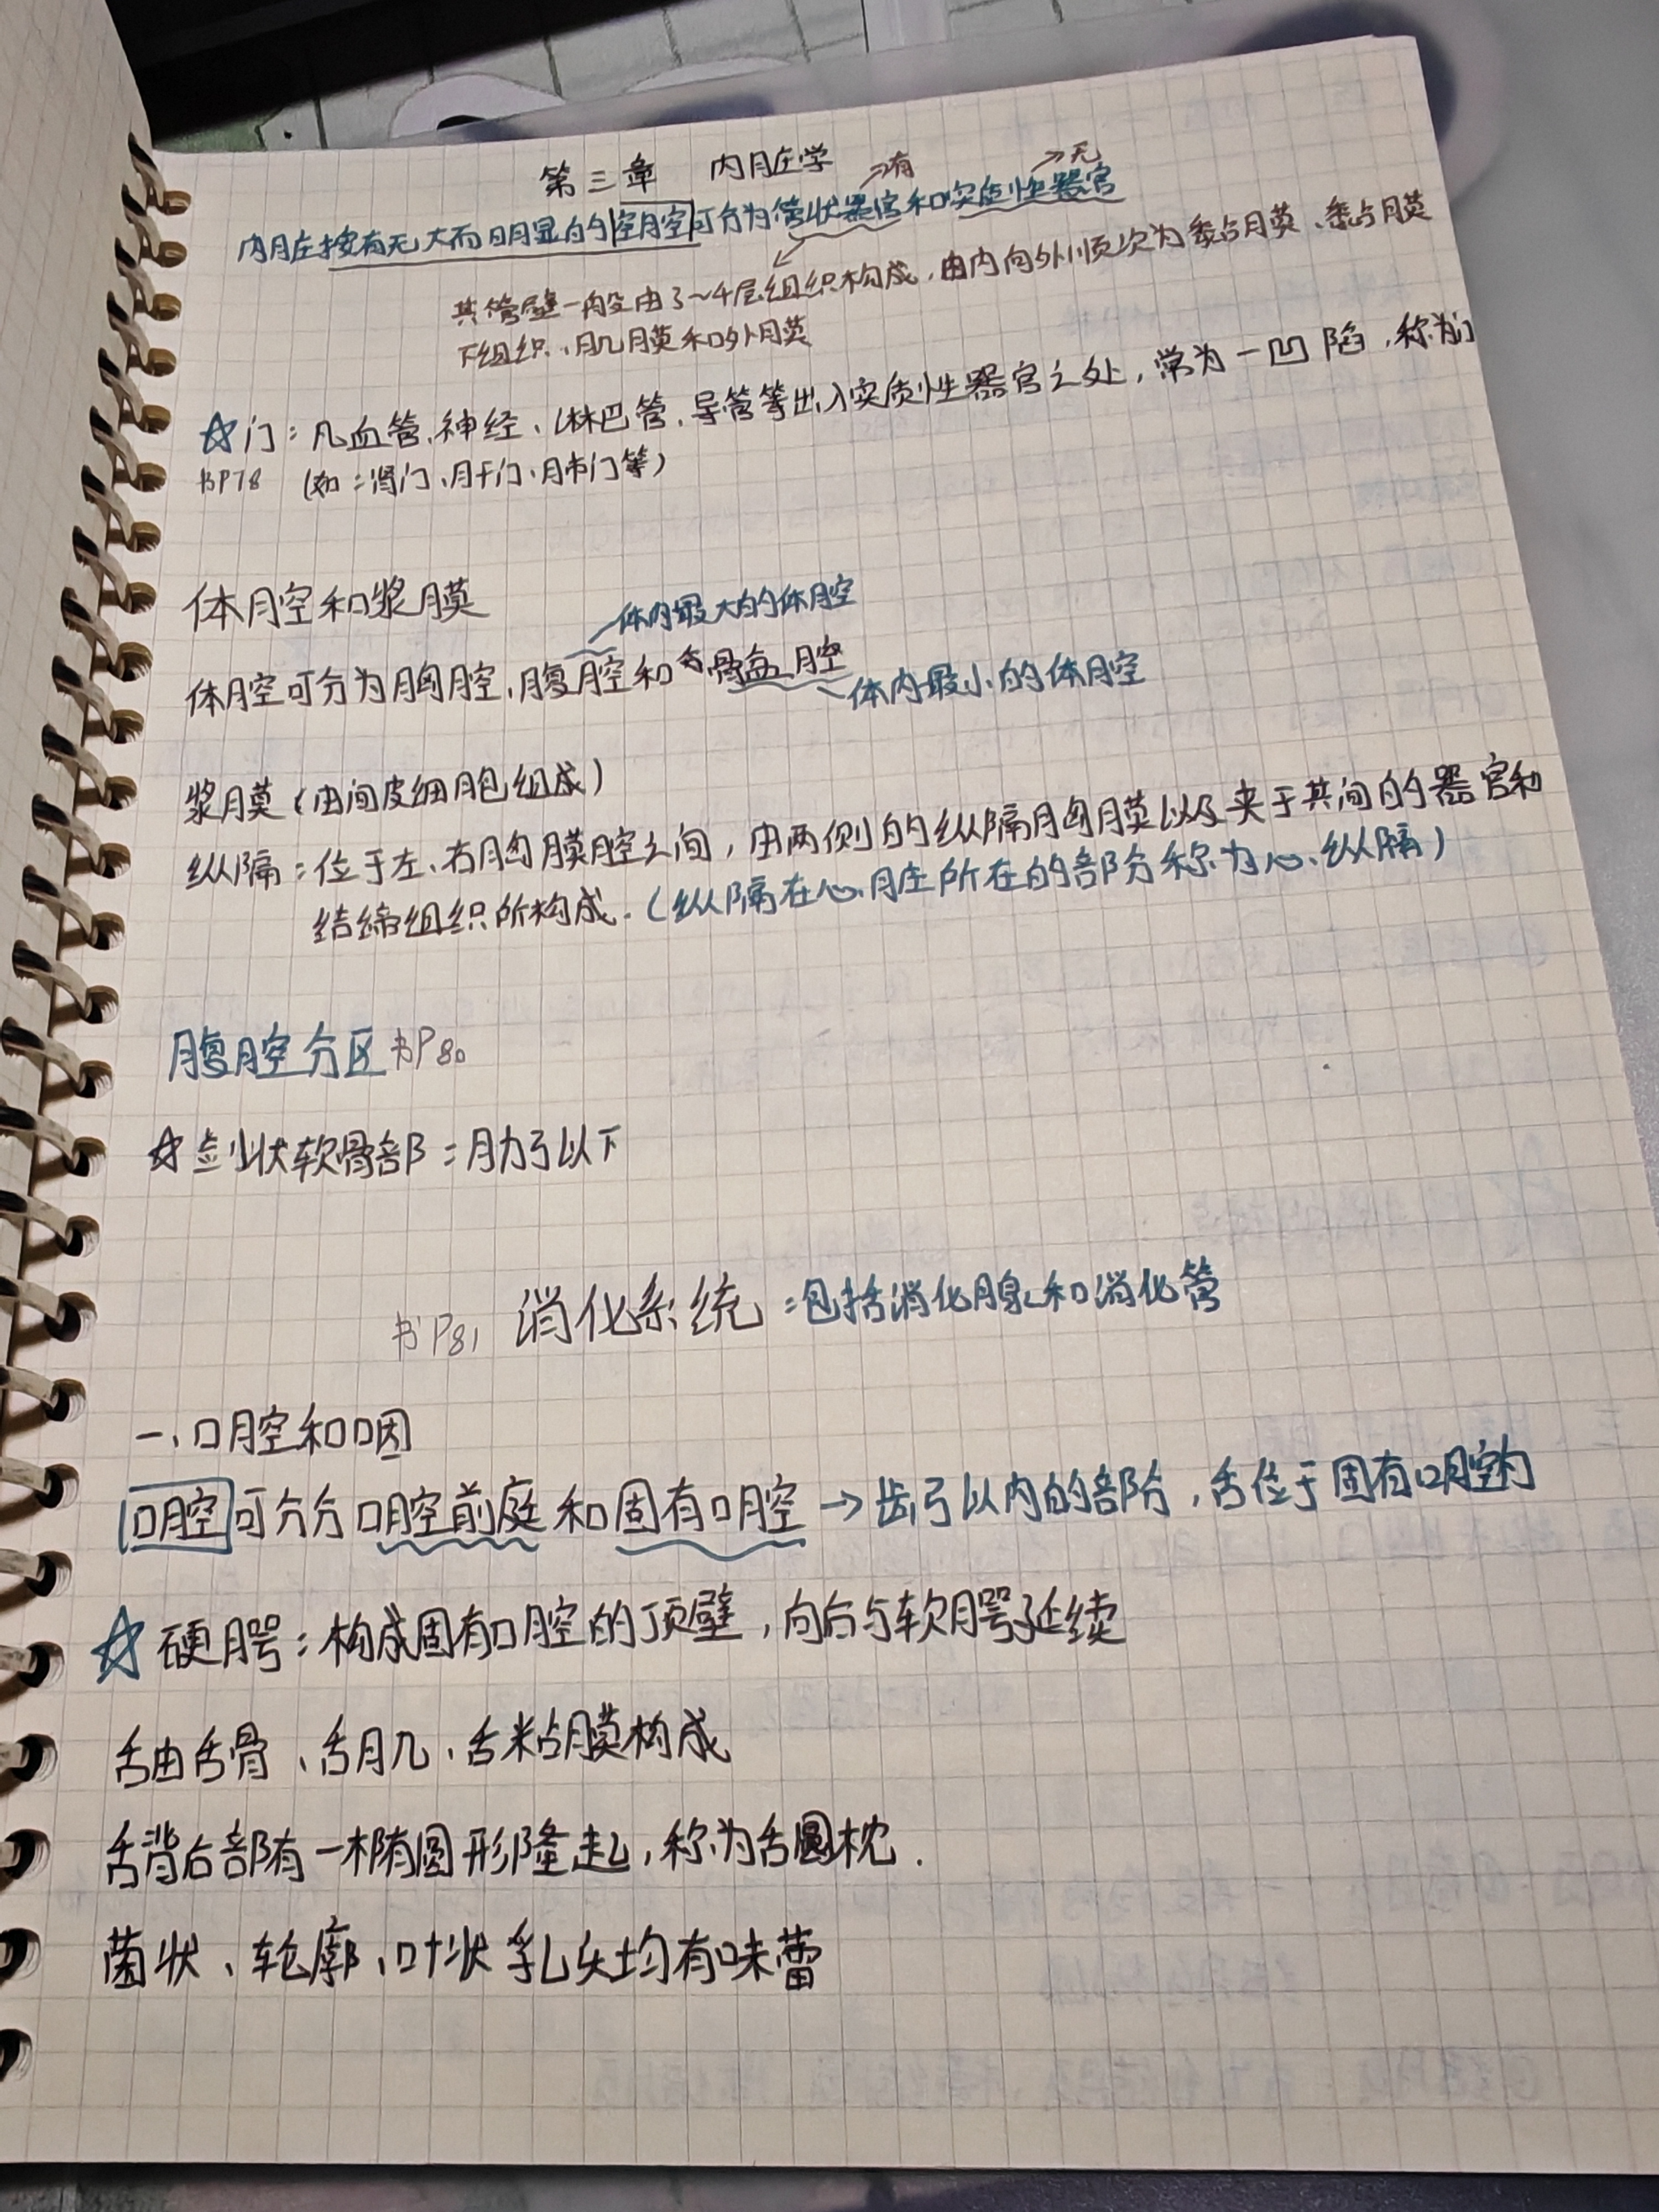 第三章 内脏学
→有 →无
内脏按有无大而明显的空腔可分为管状器官和实质性器官
其管壁一般由3~4层组织构成,由内向外顺次为黏膜、黏膜
下组织、肌膜和外膜
☆门:凡血管、神经、淋巴管、导管等出入实质性器官之处,常为一凹陷,称为门
书P78 (如:肾门、肝门、肺门等)
体腔和浆膜
体内最大的体腔
体腔可分为胸腔、腹腔和骨盆腔
体内最小的体腔
浆膜(由间皮细胞组成)
纵隔:位于左、右胸膜腔之间,由两侧的纵隔胸膜以及夹于其间的器官和
结缔组织所构成.(纵隔在心脏所在的部分称为心纵隔)
腹腔分区 书P80
☆剑状软骨部:肋弓以下
书P81 消化系统:包括消化腺和消化管
一、口腔和咽
口腔可分分口腔前庭和固有口腔→齿弓以内的部分,舌位于固有口腔内
☆硬腭:构成固有口腔的顶壁,向后与软腭延续
舌由舌骨、舌肌、舌粘膜构成
舌背后部有一椭圆形隆起,称为舌圆枕.
菌状、轮廓、叶状乳头均有味蕾